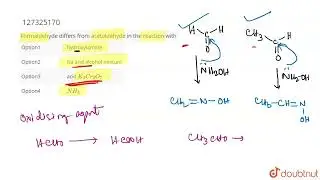 127325170
Formaldehyde differs from acetaldehyde in the reaction with
Option1 hydroxylamine
Option2 Na and alcohol mixture
Option3 acid K2Cr2O7
Option4 NH3
H H
C
O
NH2OH
CH2=N-OH
CH3 H
C
O
NH2OH
CH3-CH=N
OH
Oxidising agent
HCHO → HCOOH
CH3CHO →
doubtnut